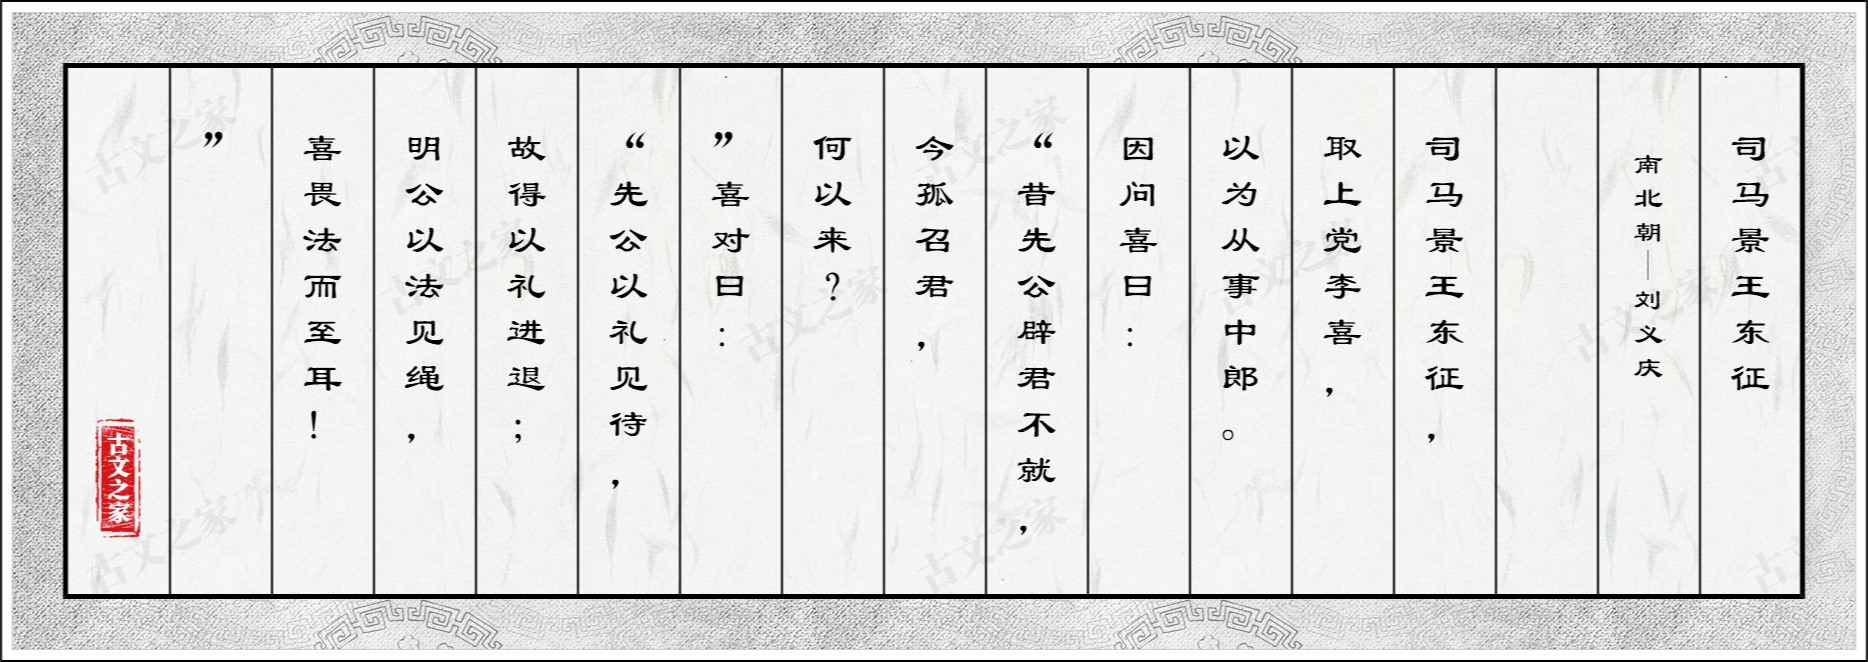 司马景王东征
南北朝—刘义庆
司马景王东征，
取上党李喜，
以为从事中郎。
因问喜曰：
“昔先公辟君不就，
今孤召君，
何以来？
”喜对曰：
“先公以礼见待，
故得以礼进退；
明公以法见绳，
喜畏法而至耳！
”
古文之家